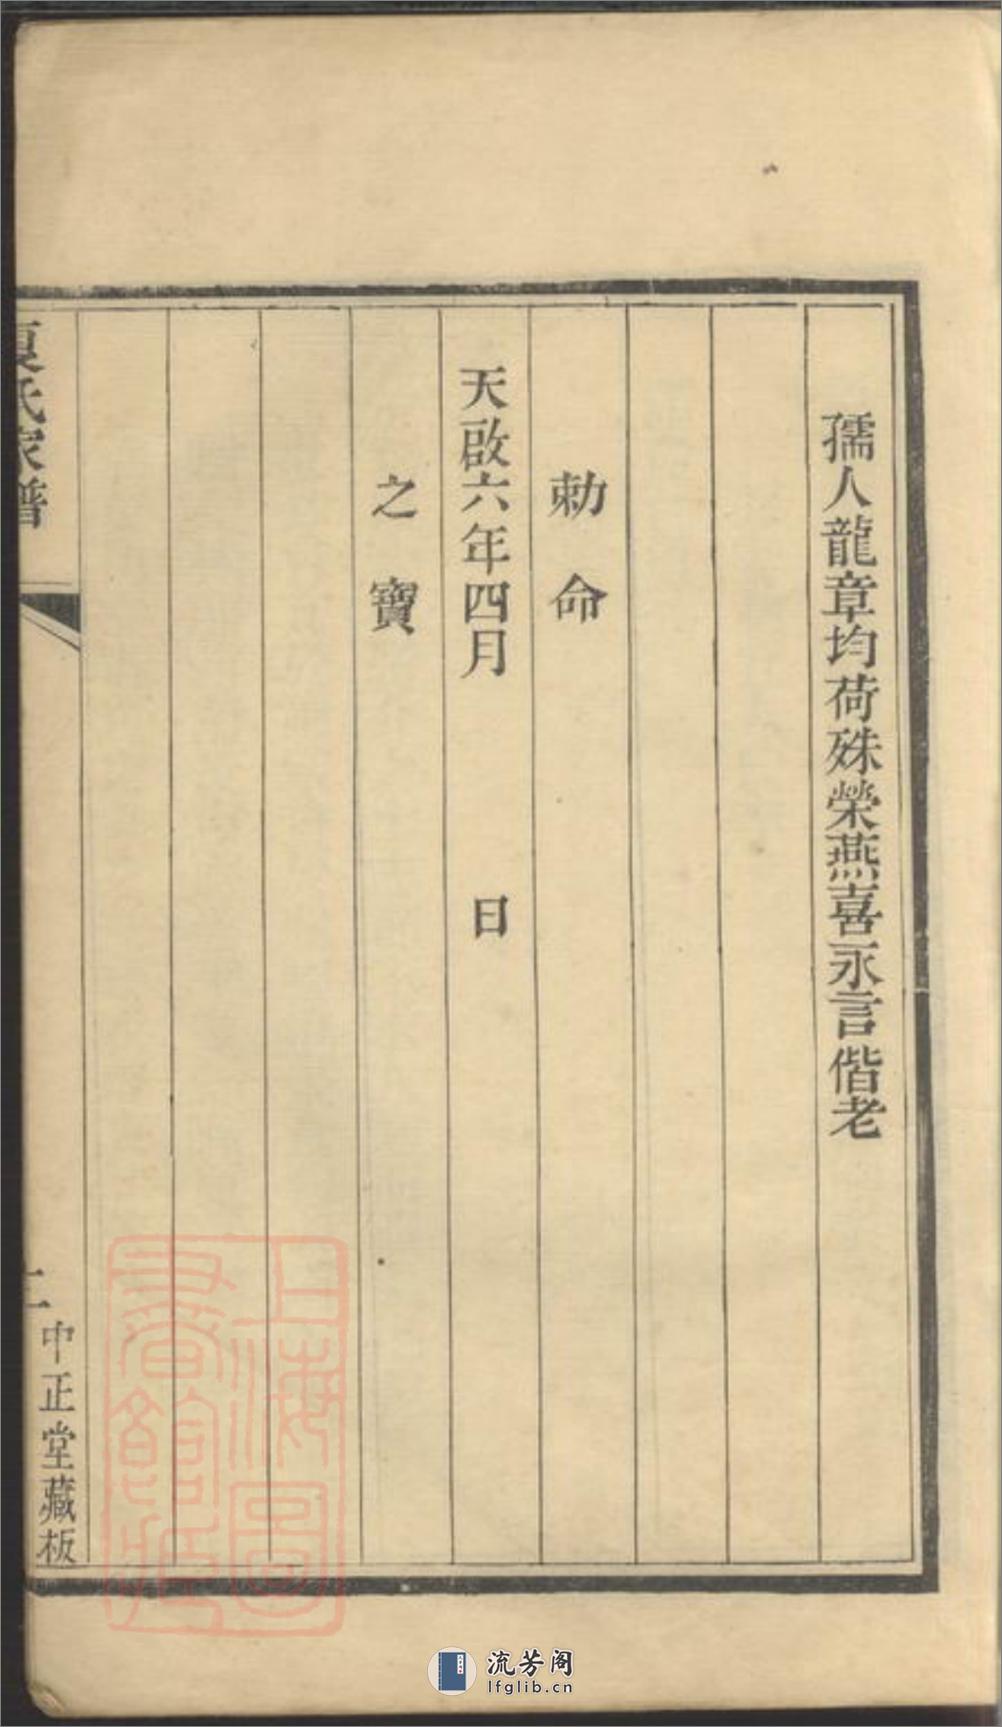 孺人龍章均荷殊榮燕喜永言偕老
勅命
天啟六年四月 日
之寶
夏氏家譜
二
中正堂藏板
上海圖書館藏
流芳阁
lfglib.cn